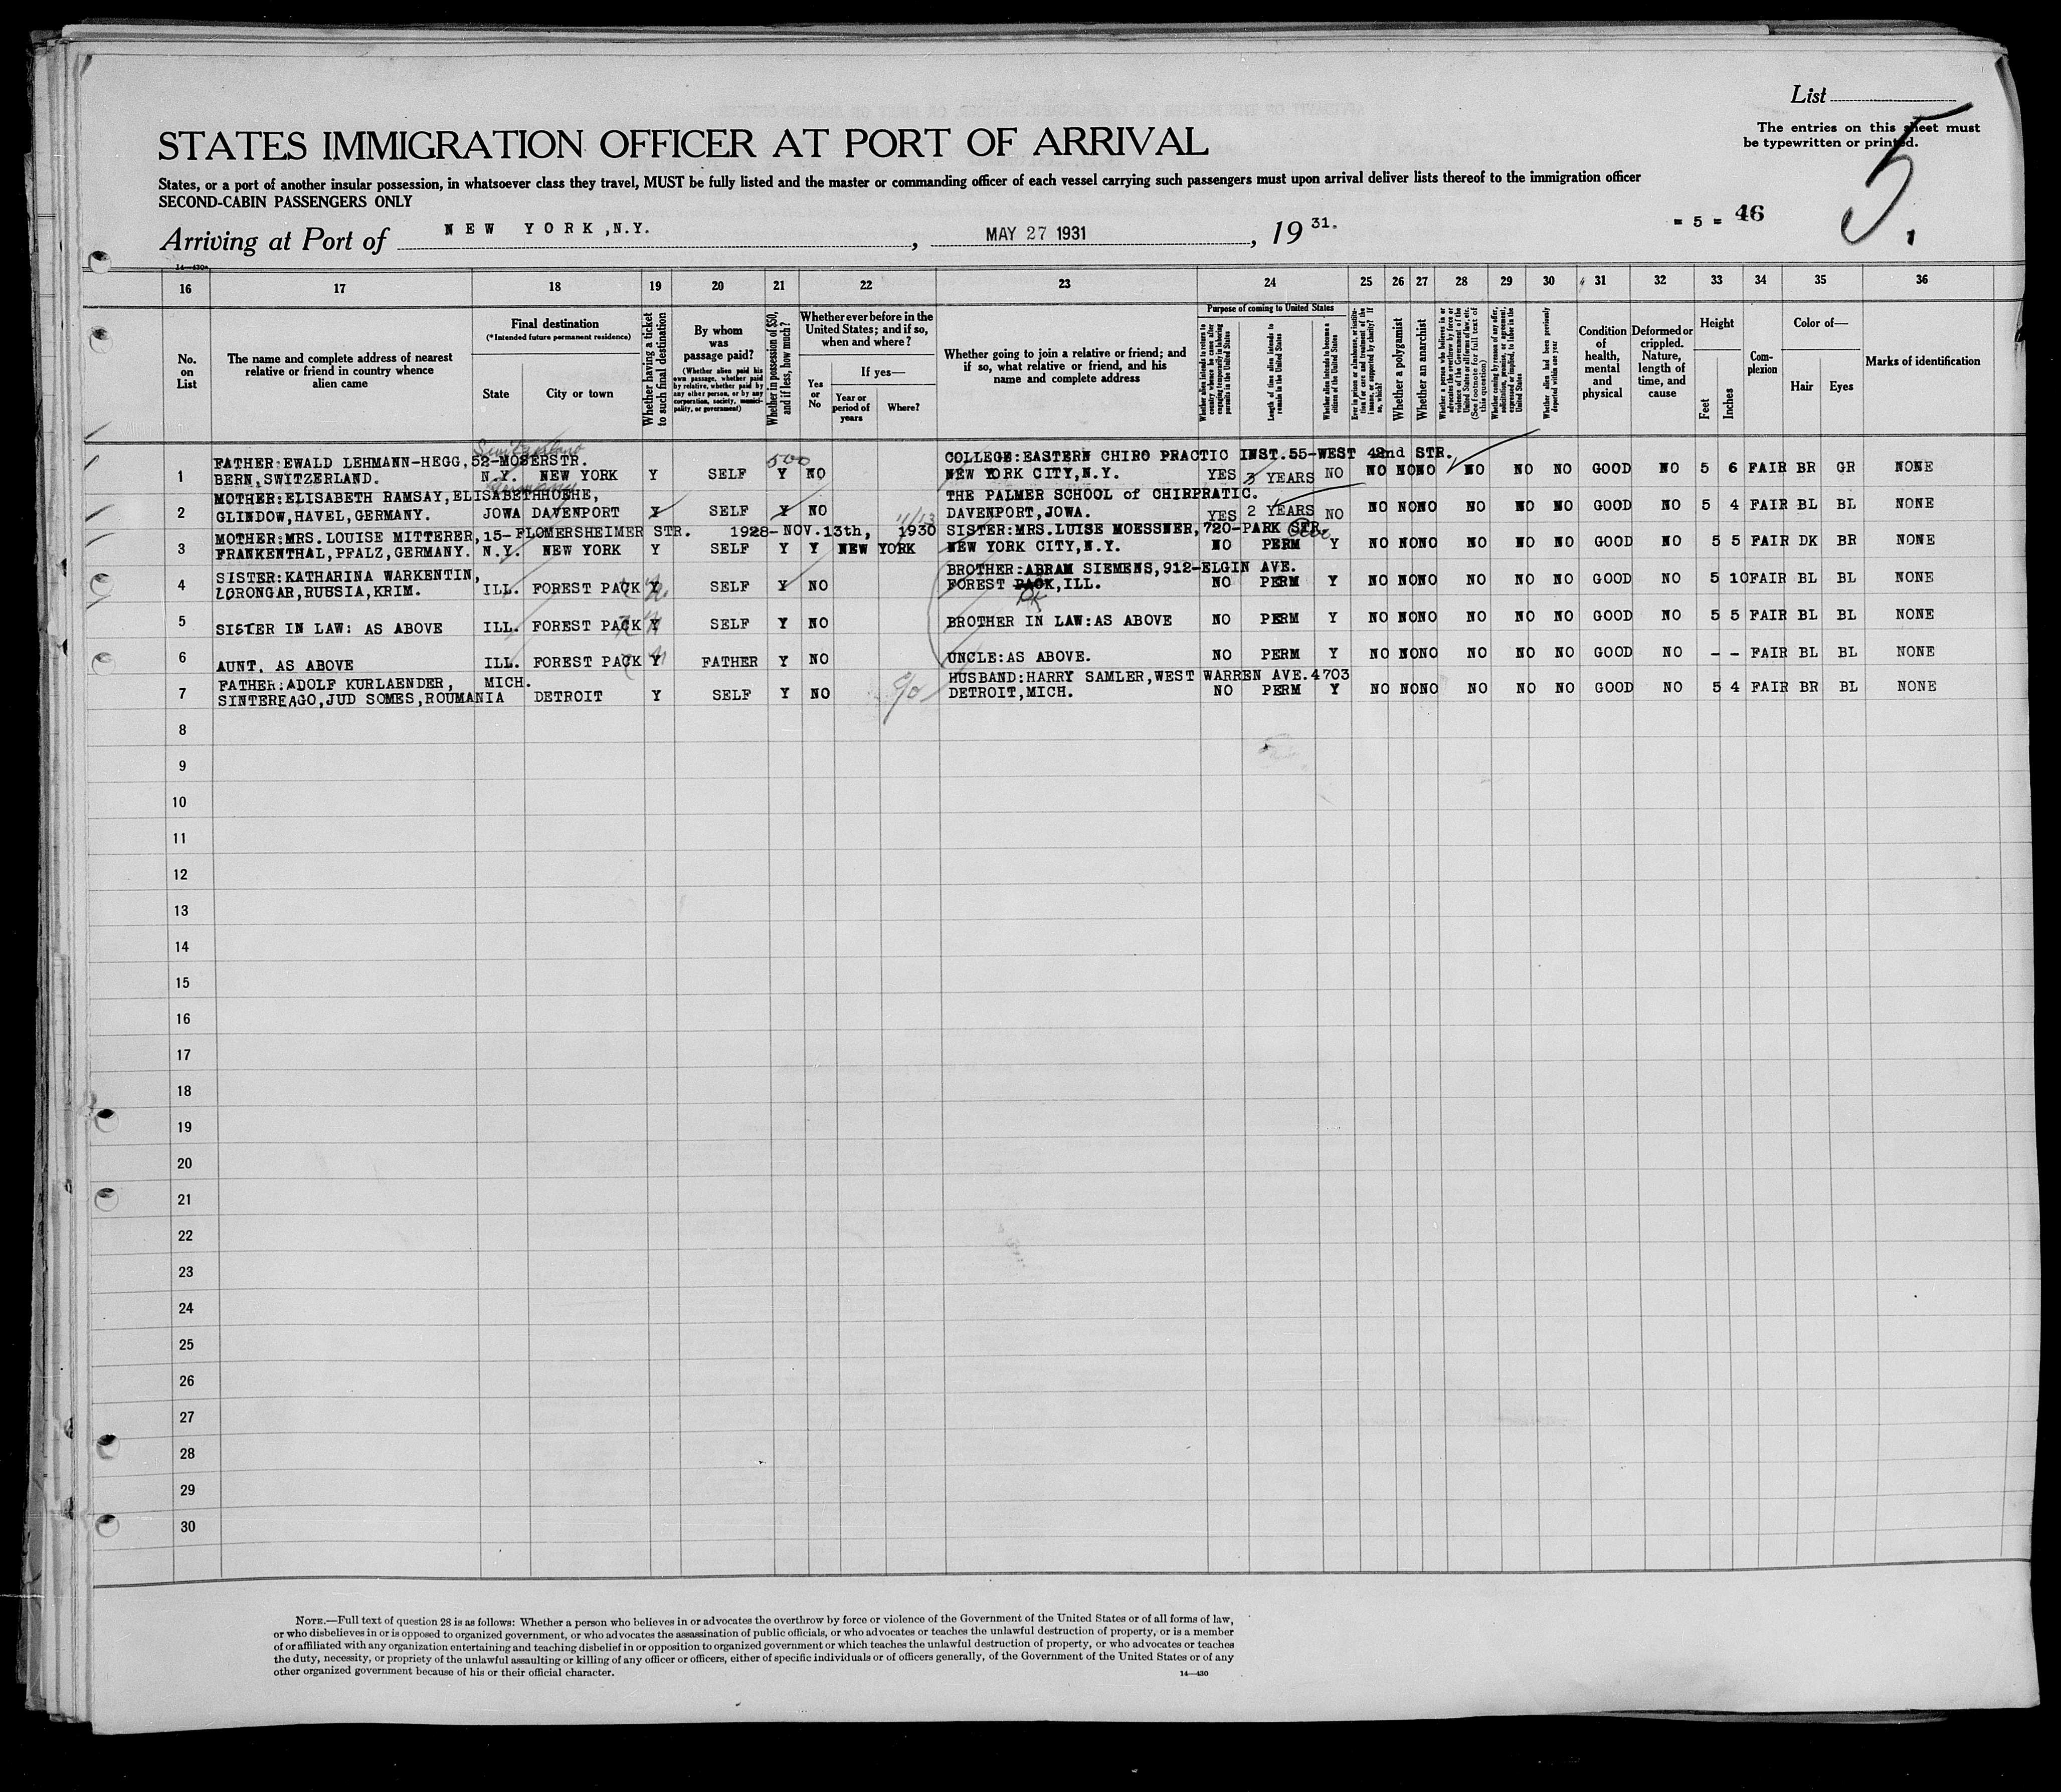 List
The entries on this sheet must
be typewritten or printed.
5.
STATES IMMIGRATION OFFICER AT PORT OF ARRIVAL
States, or a port of another insular possession, in whatsoever class they travel, MUST be fully listed and the master or commanding officer of each vessel carrying such passengers must upon arrival deliver lists thereof to the immigration officer
SECOND-CABIN PASSENGERS ONLY
Arriving at Port of NEW YORK, N.Y. , MAY 27 1931 , 19 31.
- 5 - 46
14—430a
16 17 18 19 20 21 22 23 24 25 26 27 28 29 30 31 32 33 34 35 36
No. on List
The name and complete address of nearest relative or friend in country whence alien came
Final destination
(*Intended future permanent residence)
State
City or town
Whether having a ticket to such final destination
By whom was passage paid?
(Whether alien paid his own passage, whether paid by relative, whether paid by any other person, or by any corporation, society, municipality, or government)
Whether in possession of $50, and if less, how much?
Whether ever before in the United States; and if so, when and where?
Yes or No
If yes—
Year or period of years
Where?
Whether going to join a relative or friend; and if so, what relative or friend, and his name and complete address
Purpose of coming to United States
Whether alien intends to return to country whence he came after engaging temporarily in laboring pursuits in the United States
Length of time alien intends to remain in the United States
Whether alien intends to become a citizen of the United States
Ever in prison or almshouse, or institution for care and treatment of the insane, or supported by charity? If so, which?
Whether a polygamist
Whether an anarchist
Whether a person who believes in or advocates the overthrow by force or violence of the Government of the United States or all forms of law, etc. (See footnote for full text of this question)
Whether coming by reason of any offer, solicitation, promise, or agreement, expressed or implied, to labor in the United States
Whether alien had been previously deported within one year
Condition of health, mental and physical
Deformed or crippled. Nature, length of time, and cause
Height
Feet
Inches
Complexion
Color of—
Hair
Eyes
Marks of identification
Switzerland
500
FATHER:EWALD LEHMANN-HEGG,52-MOSERSTR. COLLEGE:EASTERN CHIRO PRACTIC INST.55-WEST 42nd STR.
1 BERN,SWITZERLAND. N.Y. NEW YORK Y SELF Y NO NEW YORK CITY,N.Y. YES 3 YEARS NO NO NO NO NO NO NO GOOD NO 5 6 FAIR BR GR NONE
Germany
MOTHER:ELISABETH RAMSAY,ELISABETHHOEHE, THE PALMER SCHOOL of CHIRPRATIC.
2 GLINDOW,HAVEL,GERMANY. JOWA DAVENPORT Y SELF Y NO DAVENPORT,JOWA. YES 2 YEARS NO NO NO NO NO NO NO GOOD NO 5 4 FAIR BL BL NONE
11/13
MOTHER:MRS.LOUISE MITTERER,15-FLOMERSHEIMER STR. 1928-NOV.13th, 1930 SISTER:MRS.LUISE MOESSNER,720-PARK STR.
3 FRANKENTHAL,PFALZ,GERMANY. N.Y. NEW YORK Y SELF Y Y NEW YORK NEW YORK CITY,N.Y. NO PERM Y NO NO NO NO NO NO GOOD NO 5 5 FAIR DK BR NONE
SISTER:KATHARINA WARKENTIN, BROTHER:ABRAM SIEMENS,912-ELGIN AVE.
4 LORONGAR,RUSSIA,KRIM. ILL. FOREST PACK Y SELF Y NO FOREST PACK,ILL. NO PERM Y NO NO NO NO NO NO GOOD NO 5 10 FAIR BL BL NONE
5 SISTER IN LAW: AS ABOVE ILL. FOREST PACK Y SELF Y NO BROTHER IN LAW:AS ABOVE NO PERM Y NO NO NO NO NO NO GOOD NO 5 5 FAIR BL BL NONE
6 AUNT. AS ABOVE ILL. FOREST PACK Y FATHER Y NO UNCLE:AS ABOVE. NO PERM Y NO NO NO NO NO NO GOOD NO - - FAIR BL BL NONE
FATHER:ADOLF KURLAENDER, MICH. HUSBAND:HARRY SAMLER,WEST WARREN AVE.4703
7 SINTEREAGO,JUD SOMES,ROUMANIA DETROIT Y SELF Y NO c/o DETROIT,MICH. NO PERM Y NO NO NO NO NO NO GOOD NO 5 4 FAIR BR BL NONE
8
9
10
11
12
13
14
15
16
17
18
19
20
21
22
23
24
25
26
27
28
29
30
NOTE.—Full text of question 28 is as follows: Whether a person who believes in or advocates the overthrow by force or violence of the Government of the United States or of all forms of law,
or who disbelieves in or is opposed to organized government, or who advocates the assassination of public officials, or who advocates or teaches the unlawful destruction of property, or is a member
of or affiliated with any organization entertaining and teaching disbelief in or opposition to organized government or which teaches the unlawful destruction of property, or who advocates or teaches
the duty, necessity, or propriety of the unlawful assaulting or killing of any officer or officers, either of specific individuals or of officers generally, of the Government of the United States or of any
other organized government because of his or their official character.
14—430